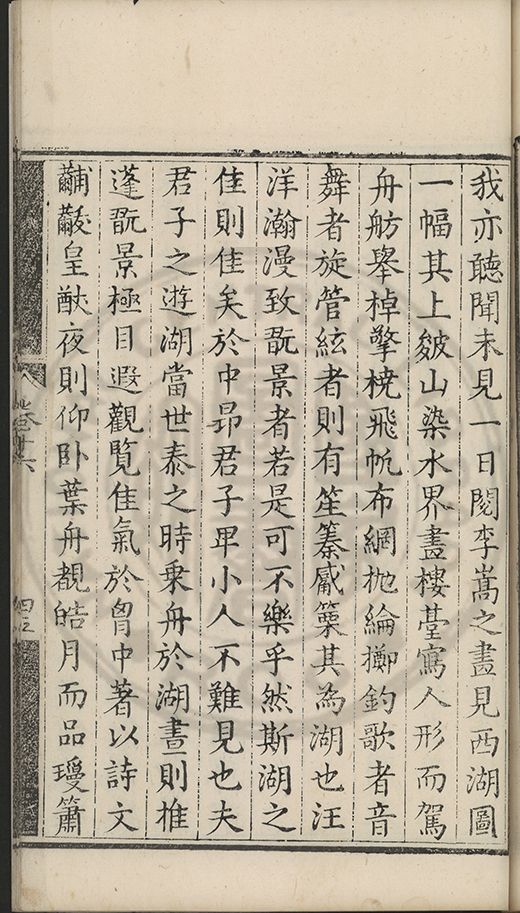 我亦聽聞未見一日閱李嵩之畫見西湖圖
一幅其上皴山染水界畫樓臺寫人形而駕
舟舫舉棹擎橈飛帆布網抛綸擲釣歌者音
舞者旋管絃者則有笙蓁
篥其為湖也汪
洋瀚漫致翫景者若是可不樂乎然斯湖之
佳則佳矣於中昻君子卑小人不難見也夫
君子之遊湖當世泰之時乗舟於湖晝則推
蓬翫景極目遐觀覽佳氣於胷中著以詩文
黼黻皇猷夜則仰卧葉舟覩皓月而品璦簫
卷十六
四三